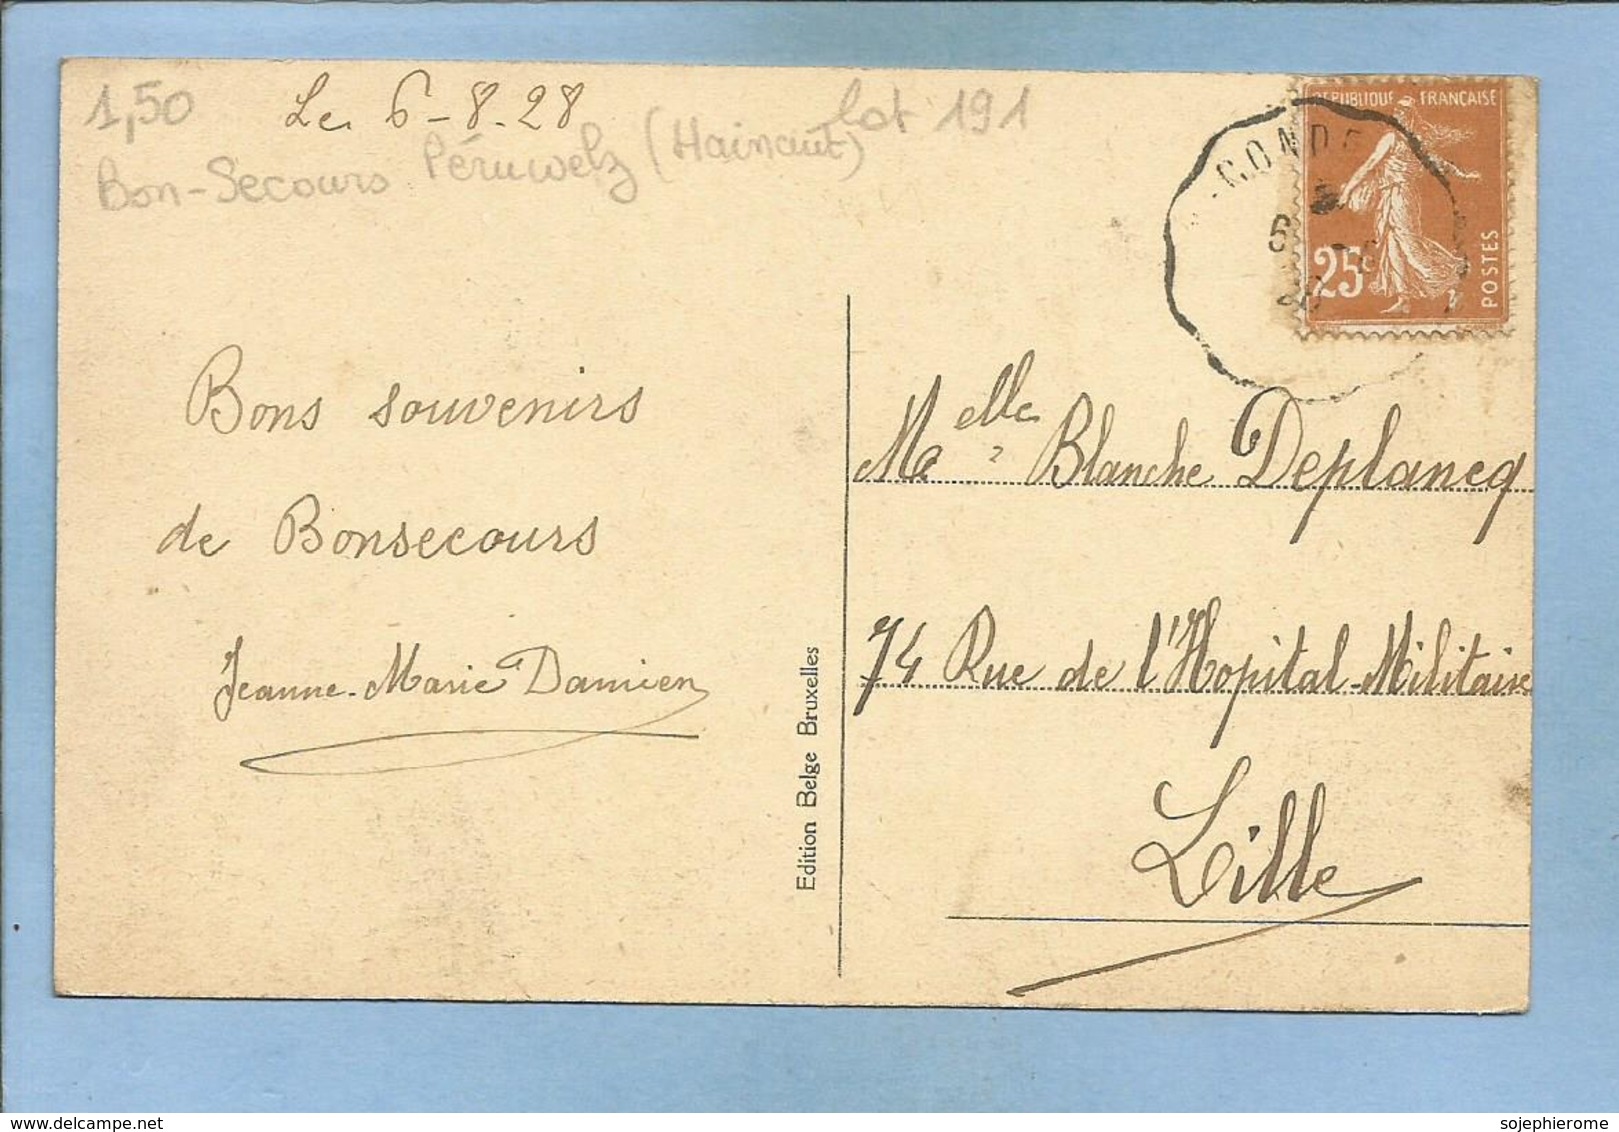 1,50
Le 6-8-28
lot 191
Bon-Secours Péruwelz (Hainaut)
REPUBLIQUE FRANÇAISE
25
POSTES
CONDE
6
Bons souvenirs
de Bonsecours
Jeanne-Marie Damien
Edition Belge Bruxelles
Melle Blanche Deplancq
74 Rue de l'Hopital-Militaire
Lille
sojephierome